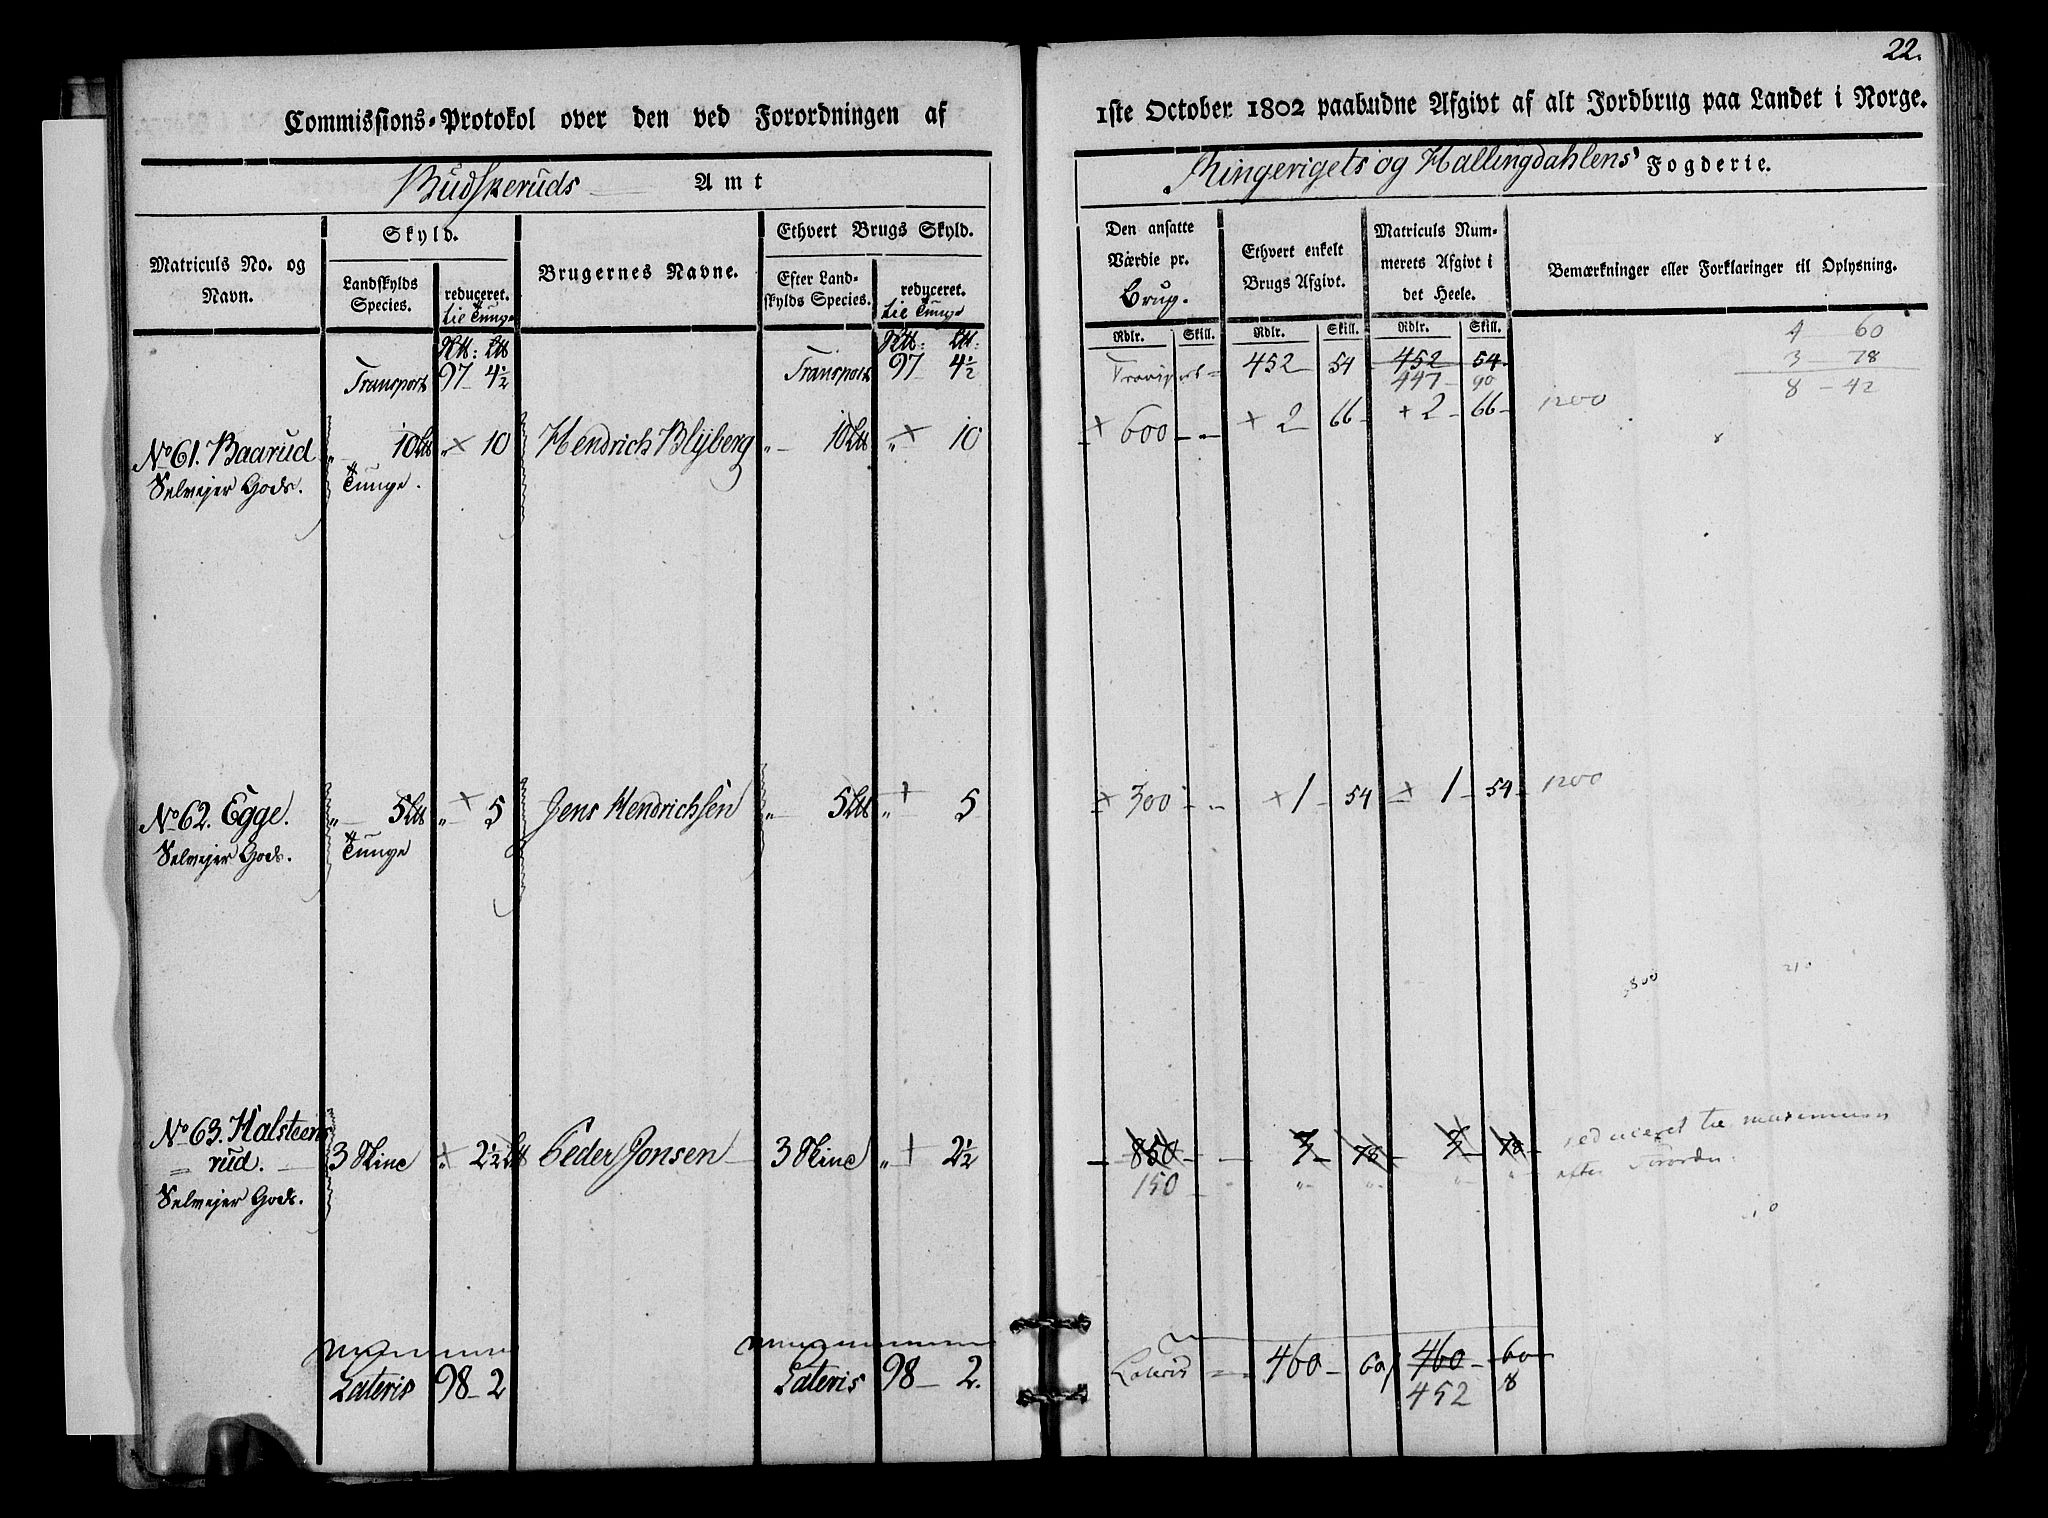 22.
Commissions-Protokol over den ved Forordningen af
1ste October 1802 paabudne Afgivt af alt Jordbrug paa Landet i Norge.
Budskeruds Amt
Ringerigets og Hallingdahlens Fogderie.
Matriculs No. og Navn.
Skyld.
Landskylds Species.
reduceret. til Tunge
Brugernes Navne.
Ethvert Brugs Skyld.
Efter Landskylds Species.
reduceret. til Tunge
Den ansatte Værdie pr. Brug.
Ethvert enkelt Brugs Afgivt.
Matriculs Nummerets Afgivt i det Heele.
Bemærkninger eller Forklaringer til Oplysning.
Rdlr. Skill. Rdlr. Skill. Rdlr. Skill.
Transport 97 4½ Transport 97 4½ Transport 452 54 452 54
447 90
4 60
3 78
8 - 42
No 61. Baarud 10 " 10 Hendrich Blijberg " 10 " 10 600 2 66 2 66 1200
Selvejer Gods. Tunge.
No 62. Egge. " 5 " 5 Jens Hendrichsen " 5 " 5 300 1 54 1 54 1200
Selvejer Gods. Tunge
800 210
No 63. Halsteens
rud. 3 Skind " 2½ Peder Jonsen 3 Skind " 2½ 850 3 78 3 78 reduceret til maximum
Selvejer Gods. 150 " " " " efter Forordn.
Lateris 98 2 Lateris 98 2. Lateris 460 60 460 60
452 8